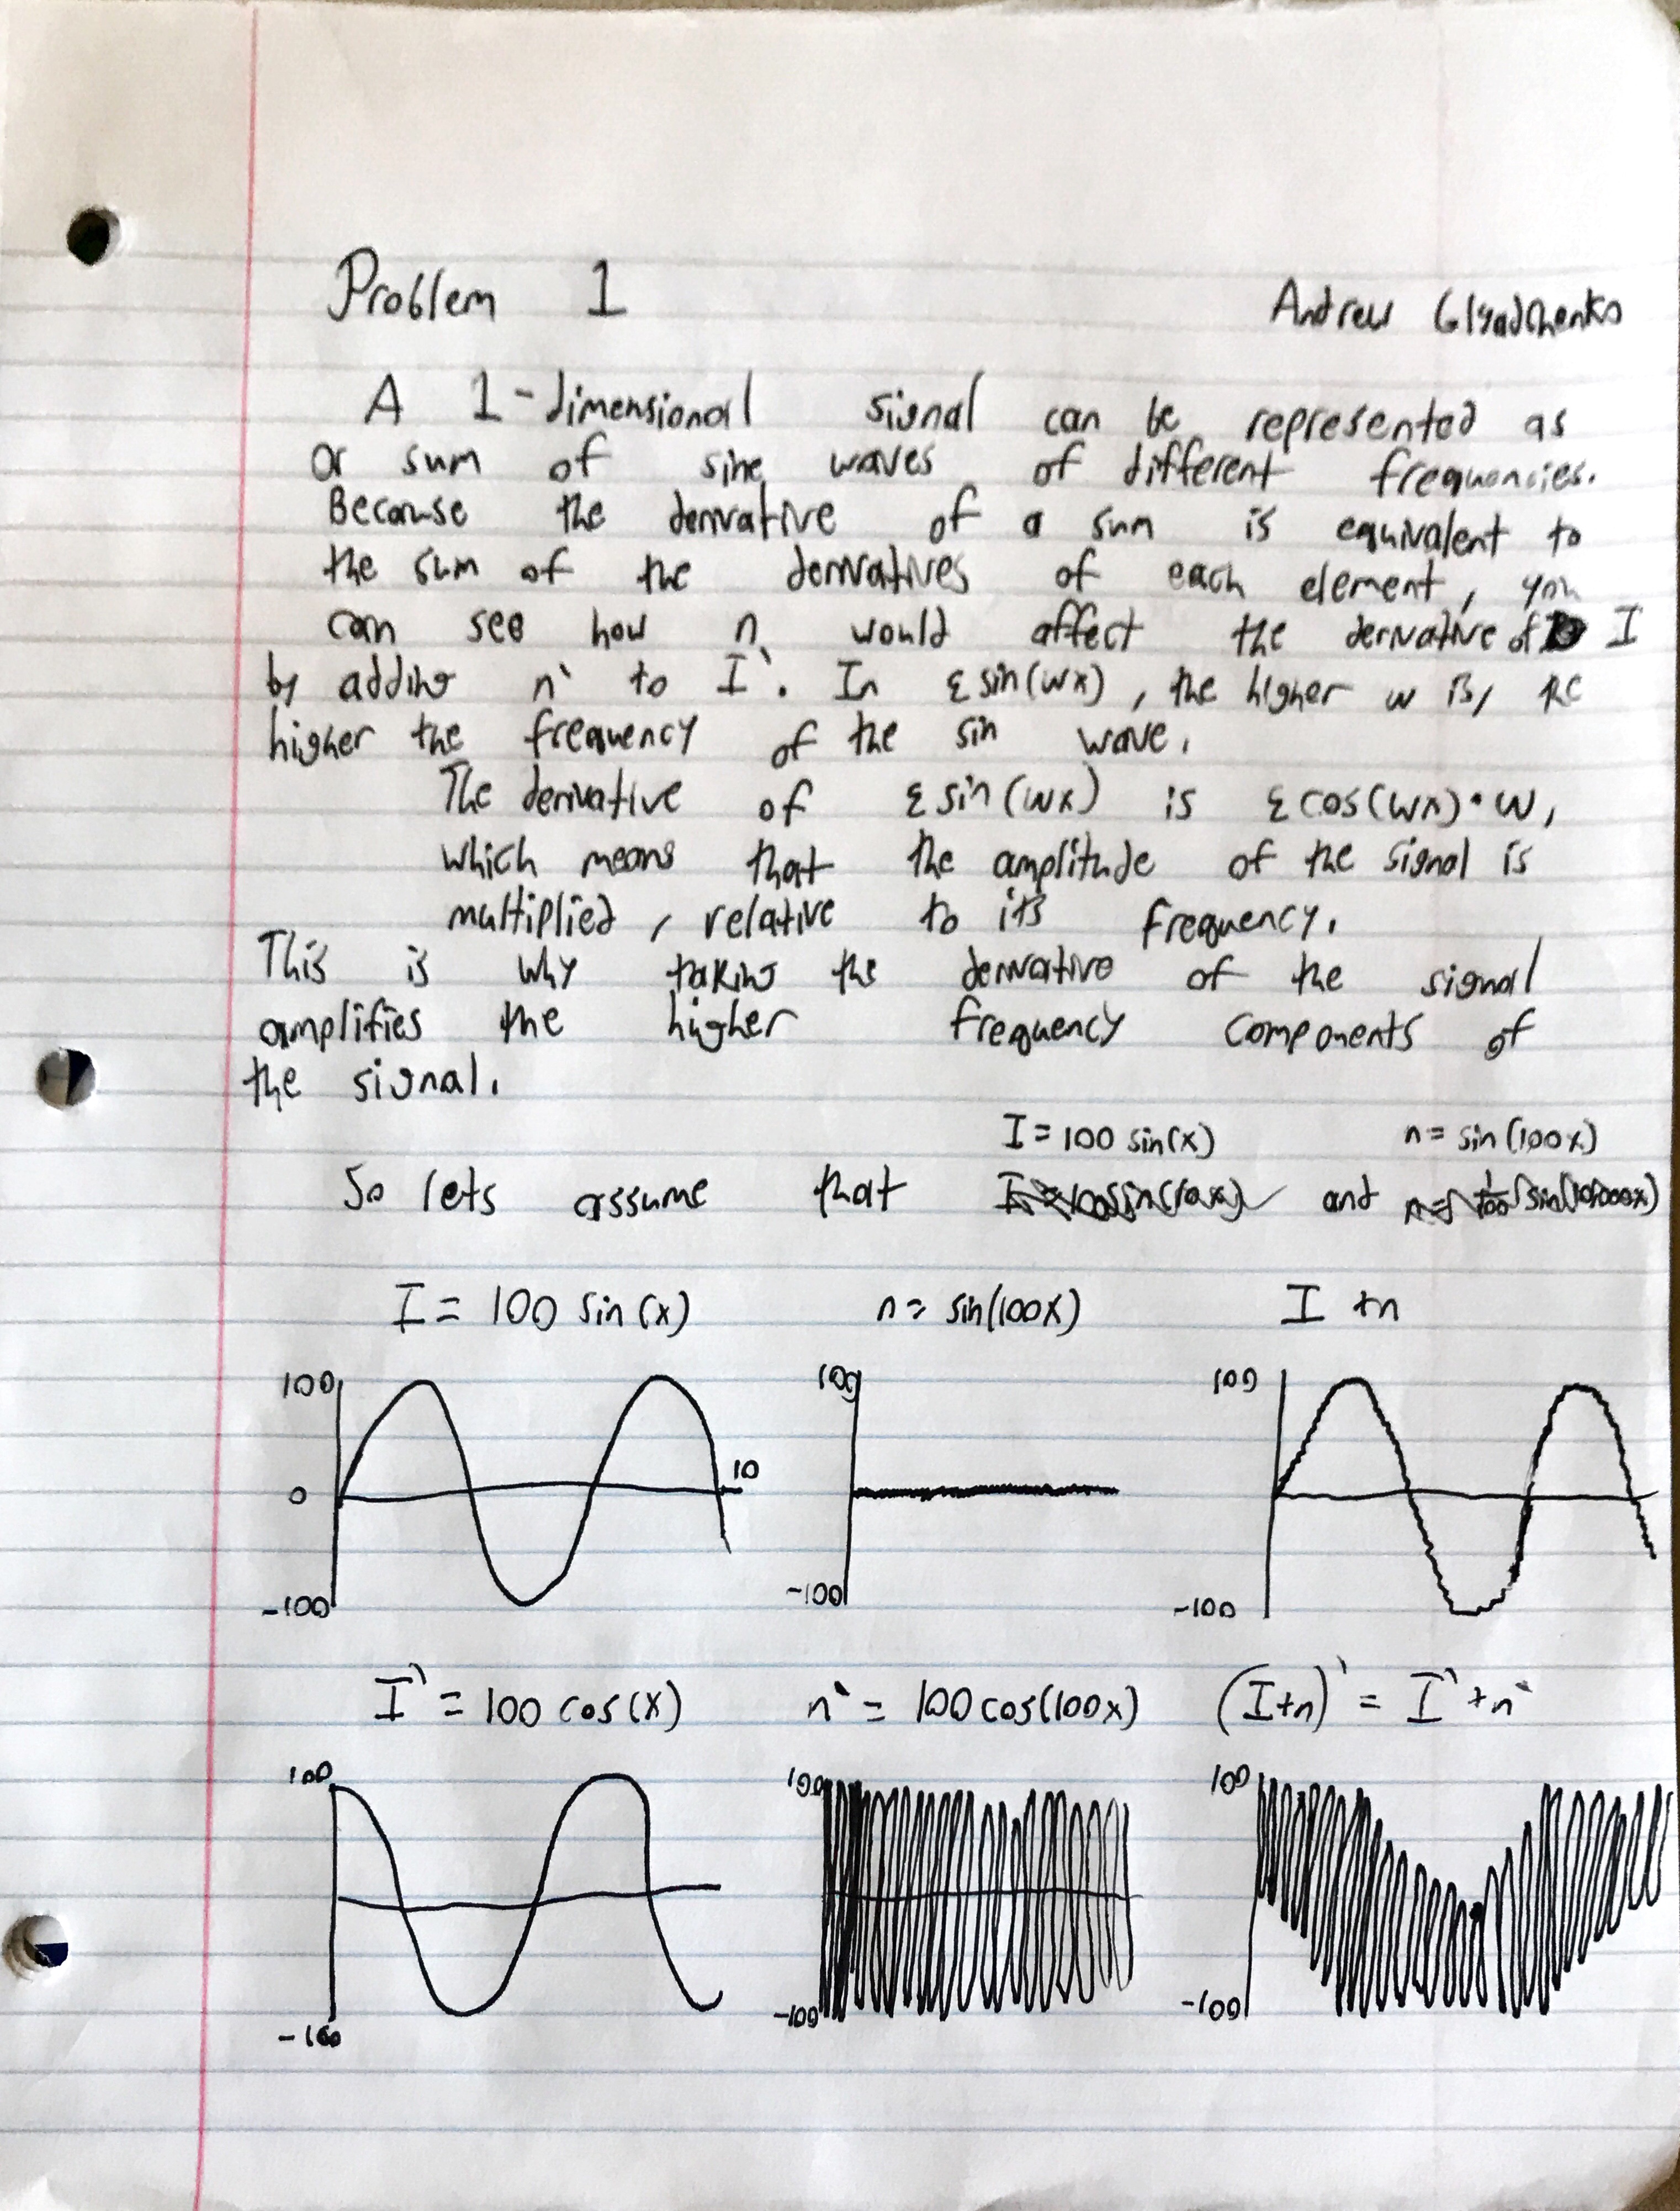 Problem 1 Andrew Glyadchenko
A 1-dimensional signal can be represented as
a sum of sine waves of different frequencies.
Because the derivative of a sum is equivalent to
the sum of the derivatives of each element, you
can see how n would affect the derivative of I
by adding n' to I'. In ε sin(wx), the higher w is, the
higher the frequency of the sin wave.
The derivative of ε sin(wx) is ε cos(wx)·w,
which means that the amplitude of the signal is
multiplied, relative to its frequency.
This is why taking the derivative of the signal
amplifies the higher frequency components of
the signal.
I = 100 sin(x) n = sin(100x)
So lets assume that and
I = 100 sin(x) n = sin(100x) I + n
100 100 100
10
0
-100 -100 -100
I' = 100 cos(x) n' = 100 cos(100x) (I+n)' = I' + n'
100 100 100
-100 -100 -100